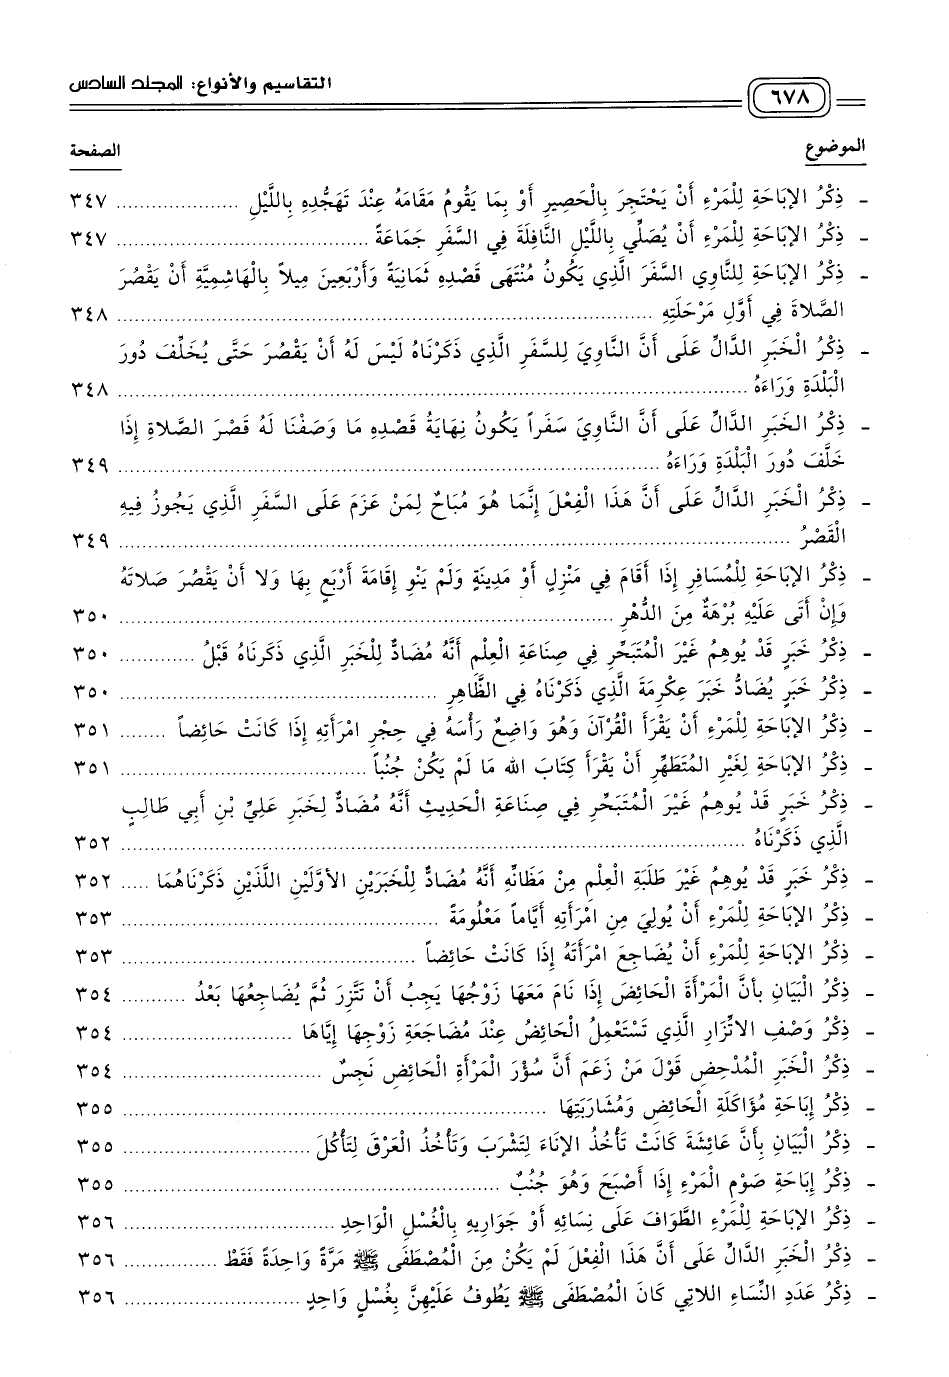 التقاسيم والأنواع: المجلد السادس
٦٧٨
الموضوع الصفحة
- ذِكْرُ الإبَاحَةِ لِلْمَرْءِ أَنْ يَحْتَجِرَ بِالْحَصِيرِ أَوْ بِمَا يَقُومُ مَقَامَهُ عِنْدَ تَهَجُّدِهِ بِاللَّيْلِ ..................... ٣٤٧
- ذِكْرُ الإبَاحَةِ لِلْمَرْءِ أَنْ يُصَلِّي بِاللَّيْلِ النَّافِلَةَ فِي السَّفَرِ جَمَاعَةً ..................... ٣٤٧
- ذِكْرُ الإبَاحَةِ لِلنَّاوِي السَّفَرَ الَّذِي يَكُونُ مُنْتَهَى قَصْدِهِ ثَمَانِيَةً وَأَرْبَعِينَ مِيلاً بِالْهَاشِمِيَّةِ أَنْ يَقْصُرَ
الصَّلَاةَ فِي أَوَّلِ مَرْحَلَتِهِ ..................... ٣٤٨
- ذِكْرُ الْخَبَرِ الدَّالِّ عَلَى أَنَّ النَّاوِيَ لِلسَّفَرِ الَّذِي ذَكَرْنَاهُ لَيْسَ لَهُ أَنْ يَقْصُرَ حَتَّى يُخَلِّفَ دُورَ
الْبَلْدَةِ وَرَاءَهُ ..................... ٣٤٨
- ذِكْرُ الخَبَرِ الدَّالِّ عَلَى أَنَّ النَّاوِيَ سَفَراً يَكُونُ نِهَايَةُ قَصْدِهِ مَا وَصَفْنَا لَهُ قَصْرَ الصَّلَاةِ إِذَا
خَلَّفَ دُورَ الْبَلْدَةِ وَرَاءَهُ ..................... ٣٤٩
- ذِكْرُ الْخَبَرِ الدَّالِّ عَلَى أَنَّ هَذَا الْفِعْلَ إِنَّمَا هُوَ مُبَاحٌ لِمَنْ عَزَمَ عَلَى السَّفَرِ الَّذِي يَجُوزُ فِيهِ
الْقَصْرُ ..................... ٣٤٩
- ذِكْرُ الإبَاحَةِ لِلْمُسَافِرِ إِذَا أَقَامَ فِي مَنْزِلٍ أَوْ مَدِينَةٍ وَلَمْ يَنْوِ إِقَامَةَ أَرْبَعٍ بِهَا وَلا أَنْ يَقْصُرَ صَلاتَهُ
وَإِنْ أَتَى عَلَيْهِ بُرْهَةٌ مِنَ الدُّهْرِ ..................... ٣٥٠
- ذِكْرُ خَبَرٍ قَدْ يُوهِمُ غَيْرَ الْمُتَبَحِّرِ فِي صِنَاعَةِ الْعِلْمِ أَنَّهُ مُضَادٌّ لِلْخَبَرِ الَّذِي ذَكَرنَاهُ قَبْلُ ............ ٣٥٠
- ذِكْرُ خَبَرٍ يُضَادُّ خَبَرَ عِكْرِمَةَ الَّذِي ذَكَرْنَاهُ فِي الظَّاهِرِ ..................... ٣٥٠
- ذِكْرُ الإبَاحَةِ لِلْمَرْءِ أَنْ يَقْرَأَ الْقُرْآنَ وَهُوَ وَاضِعٌ رَأْسَهُ فِي حِجْرِ امْرَأَتِهِ إِذَا كَانَتْ حَائِضاً ........ ٣٥١
- ذِكْرُ الإبَاحَةِ لِغَيْرِ المُتَطَهِّرِ أَنْ يَقْرَأَ كِتَابَ الله مَا لَمْ يَكُنْ جُنُباً ..................... ٣٥١
- ذِكْرُ خَبَرٍ قَدْ يُوهِمُ غَيْرَ الْمُتَبَحِّرِ فِي صِنَاعَةِ الْحَدِيثِ أَنَّهُ مُضَادٌّ لِخَبَرِ عَلِيِّ بْنِ أَبِي طَالِبٍ
الَّذِي ذَكَرْنَاهُ ..................... ٣٥٢
- ذِكْرُ خَبَرٍ قَدْ يُوهِمُ غَيْرَ طَلَبَةِ الْعِلْمِ مِنْ مَظَانِّهِ أَنَّهُ مُضَادٌّ لِلْخَبَرَيْنِ الأَوَّلَيْنِ اللَّذَيْنِ ذَكَرْنَاهُمَا ..... ٣٥٢
- ذِكْرُ الإبَاحَةِ لِلْمَرْءِ أَنْ يُولِيَ مِنِ امْرَأَتِهِ أَيَّاماً مَعْلُومَةً ..................... ٣٥٣
- ذِكْرُ الإبَاحَةِ لِلْمَرْءِ أَنْ يُضَاجِعَ امْرَأَتَهُ إِذَا كَانَتْ حَائِضاً ..................... ٣٥٣
- ذِكْرُ الْبَيَانِ بأنَّ الْمَرْأَةَ الْحَائِضَ إِذَا نَامَ مَعَهَا زَوْجُهَا يَجِبُ أَنْ تَتَّزِرَ ثُمَّ يُضَاجِعُهَا بَعْدُ .......... ٣٥٤
- ذِكْرُ وَصْفِ الاتِّزَارِ الَّذِي تَسْتَعْمِلُ الْحَائِضُ عِنْدَ مُضَاجَعَةِ زَوْجِهَا إِيَّاهَا ..................... ٣٥٤
- ذِكْرُ الْخَبَرِ الْمُدْحِضِ قَوْلَ مَنْ زَعَمَ أَنَّ سُؤْرَ الْمَرْأَةِ الْحَائِضِ نَجِسٌ ..................... ٣٥٤
- ذِكْرُ إِبَاحَةِ مُؤَاكَلَةِ الْحَائِضِ وَمُشَارَبَتِهَا ..................... ٣٥٥
- ذِكْرُ الْبَيَانِ بِأَنَّ عَائِشَةَ كَانَتْ تَأْخُذُ الإنَاءَ لِتَشْرَبَ وَتَأْخُذُ الْعَرْقَ لِتَأْكُلَ ..................... ٣٥٥
- ذِكْرُ إِبَاحَةِ صَوْمِ الْمَرْءِ إِذَا أَصْبَحَ وَهُوَ جُنُبٌ ..................... ٣٥٥
- ذِكْرُ الإبَاحَةِ لِلْمَرْءِ الطَّوَافَ عَلَى نِسَائِهِ أَوْ جَوَارِيهِ بِالْغُسْلِ الْوَاحِدِ ..................... ٣٥٦
- ذِكْرُ الْخَبَرِ الدَّالِّ عَلَى أَنَّ هَذَا الْفِعْلَ لَمْ يَكُنْ مِنَ الْمُصْطَفَى ﷺ مَرَّةً وَاحِدَةً فَقَطْ ............... ٣٥٦
- ذِكْرُ عَدَدِ النِّسَاءِ اللاتِي كَانَ الْمُصْطَفَى ﷺ يَطُوفُ عَلَيْهِنَّ بِغُسْلٍ وَاحِدٍ ..................... ٣٥٦